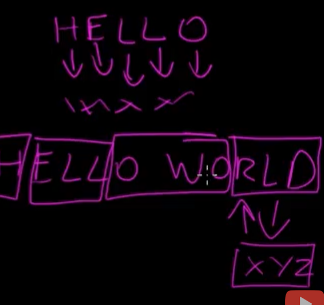 HELLO
HELLO WORLD
XYZ